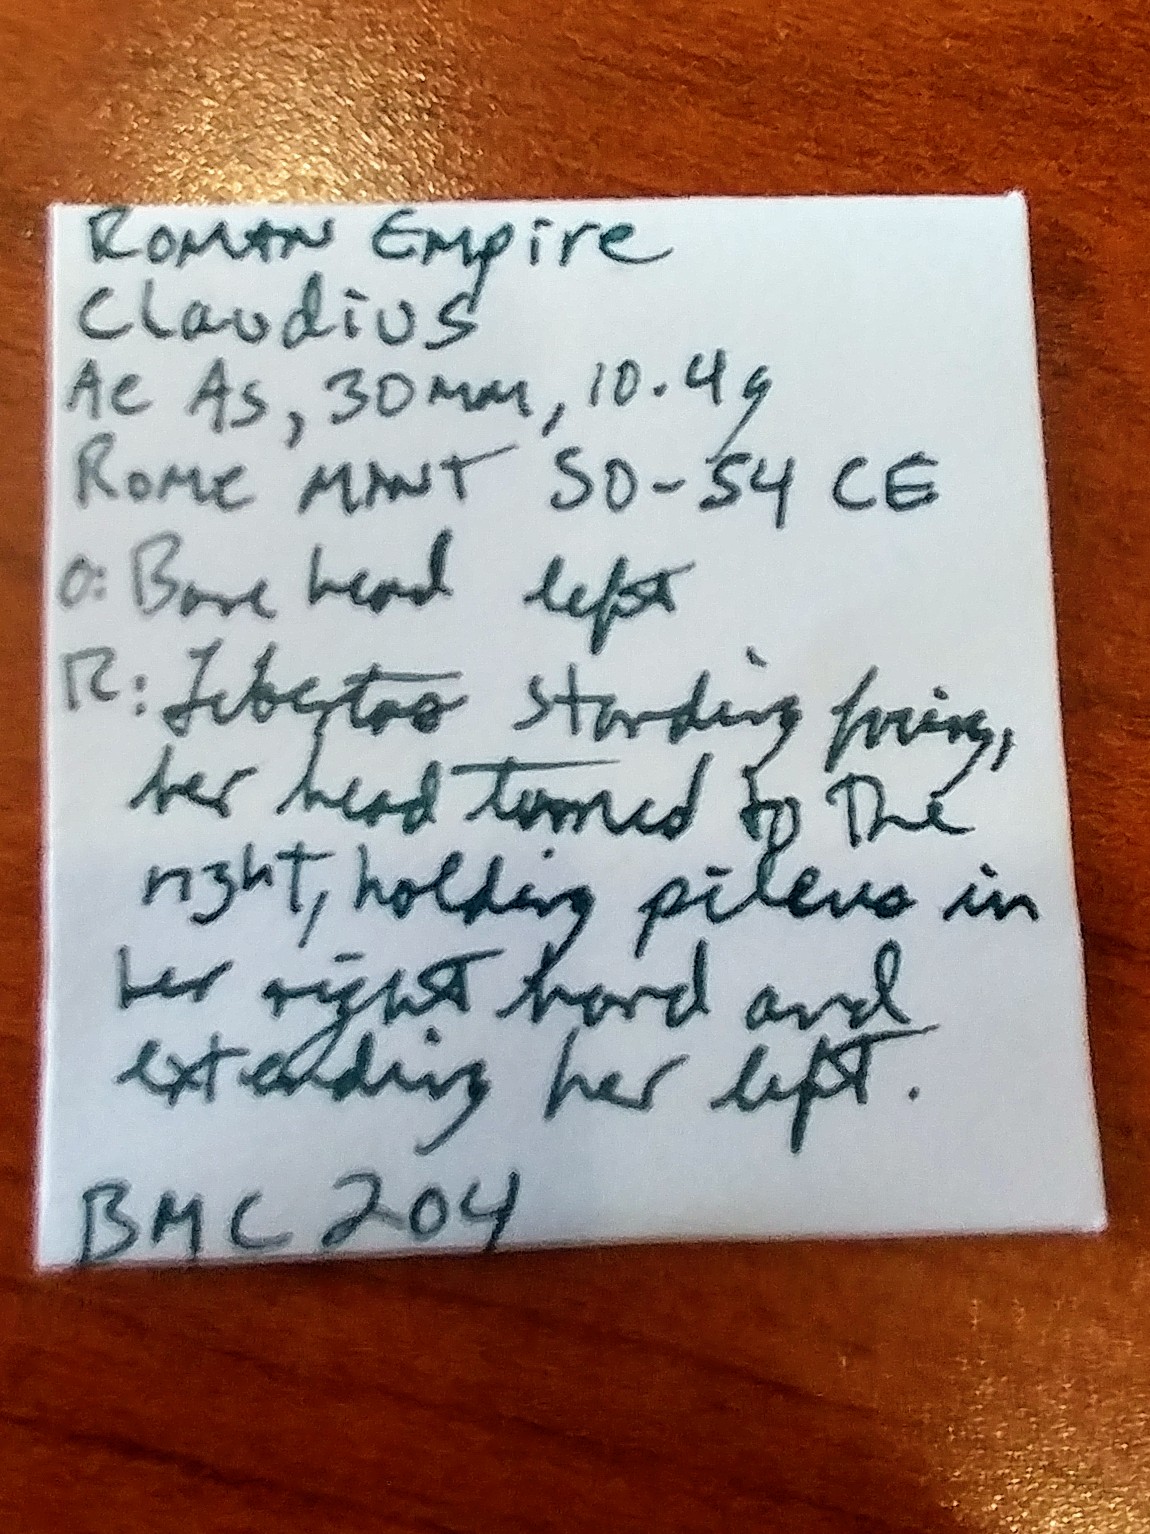 Roman Empire
Claudius
Ae As, 30mm, 10.4g
Rome Mint 50-54 CE
O: Bare head left
R: Libertas standing facing,
her head turned to the
right, holding pileus in
her right hand and
extending her left.
BMC 204